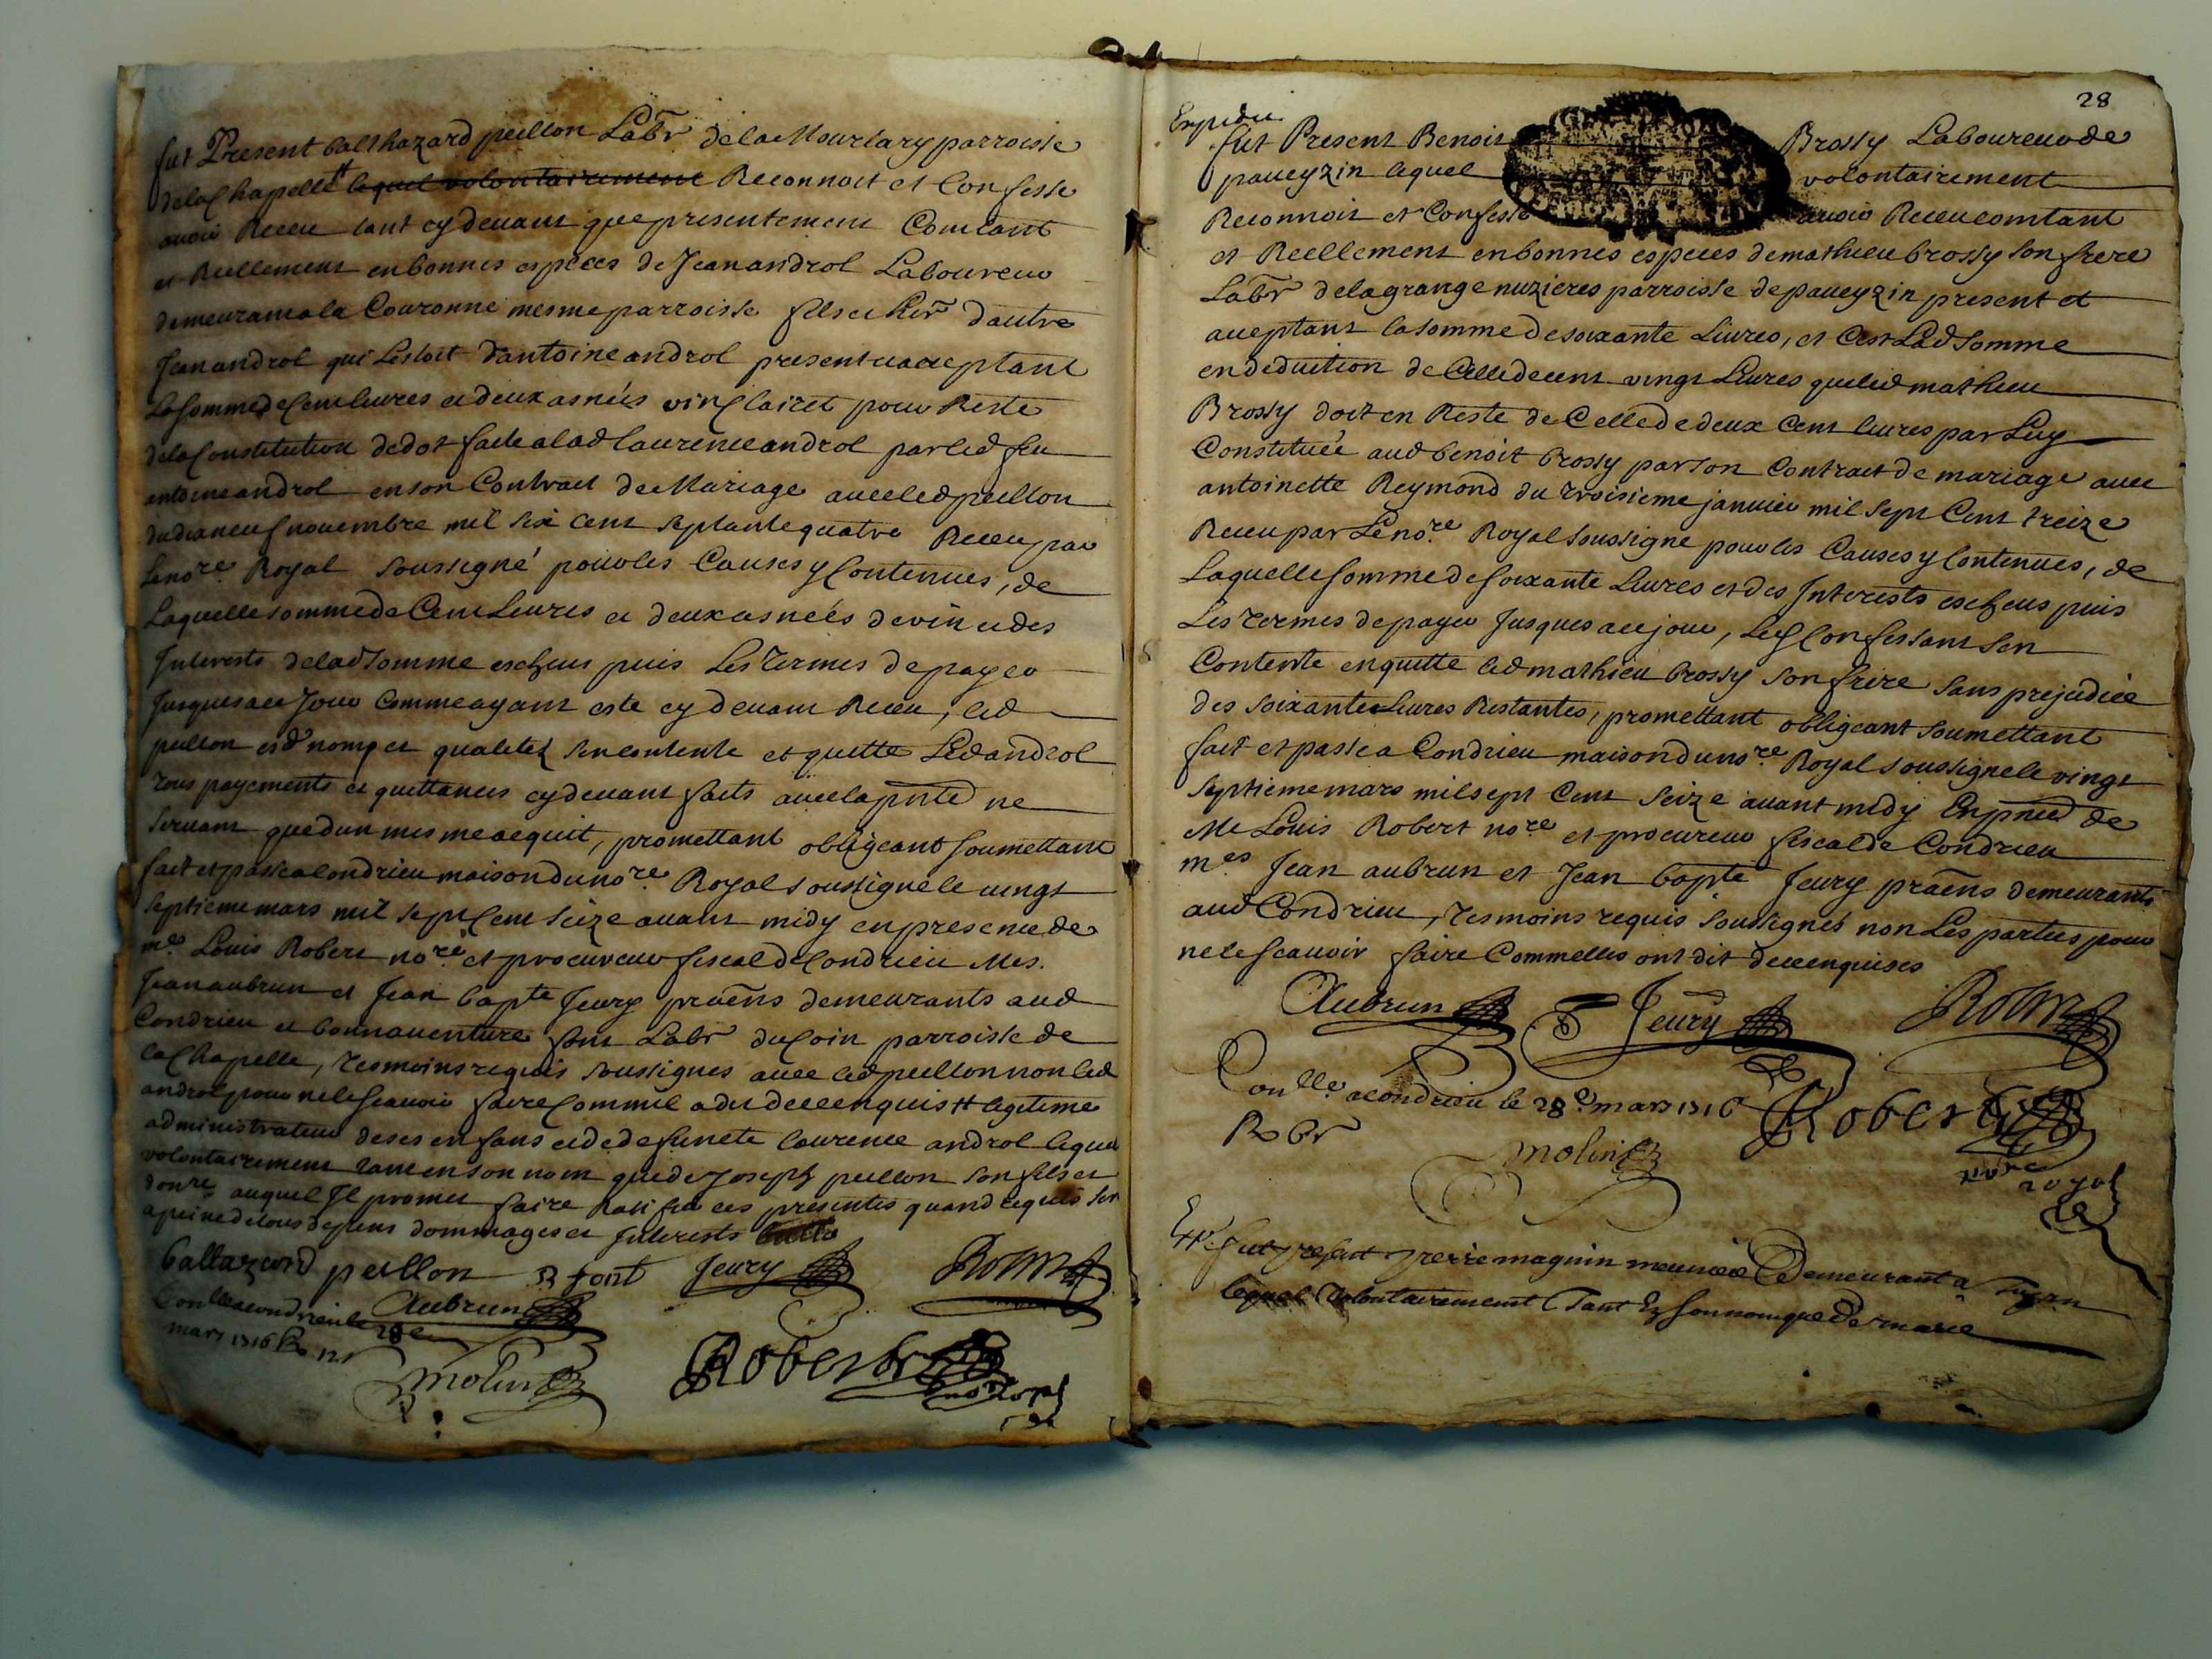 fut Present balthazard peillon Labr dela Mourlary parroisse
dela Chapelle # lequel volontairement Reconnoit et Confesse
avoir Receu tant cy devant que presentement Comtant
et Reellement en bonnes especes de Jean androl Laboureur
demeurant a la Couronne mesme parroisse fils et her d'autre
Jean androl qui Lestoit d'antoine androl present et acceptant
La somme de Cent livres et deux asnées vin Clairet pour Reste
dela Constitution de dot faite a lad laurence androl par led feu
antoine androl en son Contract de Mariage avec led peillon
du dix neuf novembre mil six cent septante quatre Receu par
Le nore Royal soussigné pour les Causes y Contenues, de
Laquelle somme de Cent Livres et deux asneés de vin et des
Interests de lad somme escheus puis Les termes de payer
Jusques a ce Jour comme ayant esté cy devant Receu, led
peillon esd noms et qualitez s'en contente et quitte Led androl
tous payements et quittances cy devant faits avec la pnte ne
servant que d'un mesme acquit, promettant obligeant soumettant
fait et passé a Condrieu maison du nore Royal soussigné le vingt
septieme mars mil sept Cent seize avant midy en presence de
me Louis Robert nore et procureur fiscal de Condrieu Mes.
Jean aubrun et Jean bapte Jeury praëns demeurants aud
Condrieu et bonnaventure font Labr du Coin parroisse de
la Chapelle, tesmoins requis soussignes avec led peillon non led
androl pour ne le scavoir faire Comme il a dit de ce enquis # legitime
administrateur de ses enfans et de defuncte laurence androl lequel
volontairement tant en son nom que de Joseph peillon son fils et
donre auquel Il promet faire Ratifier ces presentes quand requis sera
a peine de tous despens dommages et Interests
baltazard peillon B font Jeury Robert
Conlle a condrieu le 28e Aubrun
mars 1716 R 12s
Molin Robert
nore Royal
28
Expediée
fut Present Benoit Brossy Laboureur de
paveyzin lequel volontairement
Reconnoit et Confesse avoir Receu comtant
et Reellement en bonnes especes de mathieu brossy son frere
Labr de la grange nuzieres parroisse de paveyzin present et
acceptant la somme de soixante Livres, et C'est Lad somme
en deduction de Celle de cent vingt Livres que led mathieu
Brossy doit en Reste de Celle de deux Cent livres par Luy
Constituée aud benoit brossy par son Contract de mariage avec
antoinette Reymond du troisieme janvier mil sept Cent treize
Receu par Le nore Royal soussigné pour les Causes y Contenues, de
Laquelle somme de soixante Livres et des Interests escheus puis
Les termes de payer Jusques a ce jour, Les Confessant s'en
Contente en quitte led mathieu brossy son frere sans prejudice
des soixante Livres Restantes, promettant obligeant soumettant
fait et passé a Condrieu maison du nore Royal soussigné le vingt
septieme mars mil sept Cent seize avant midy En pnce de
Me Louis Robert nore et procureur fiscal de Condrieu
mes Jean aubrun et Jean bapte Jeury praëns demeurants
aud Condrieu, tesmoins requis soussignés non Les parties pour
ne le scavoir faire Comme elles ont dit de ce enquises
Aubrun Jeury Robert
Conlle a condrieu le 28e mars 1716 Robert
R 6s
Molin
nore royal
Exp. fut present pierre magnin meunier Demeurant a
lequel Volontairement Tant En son nom que De marie